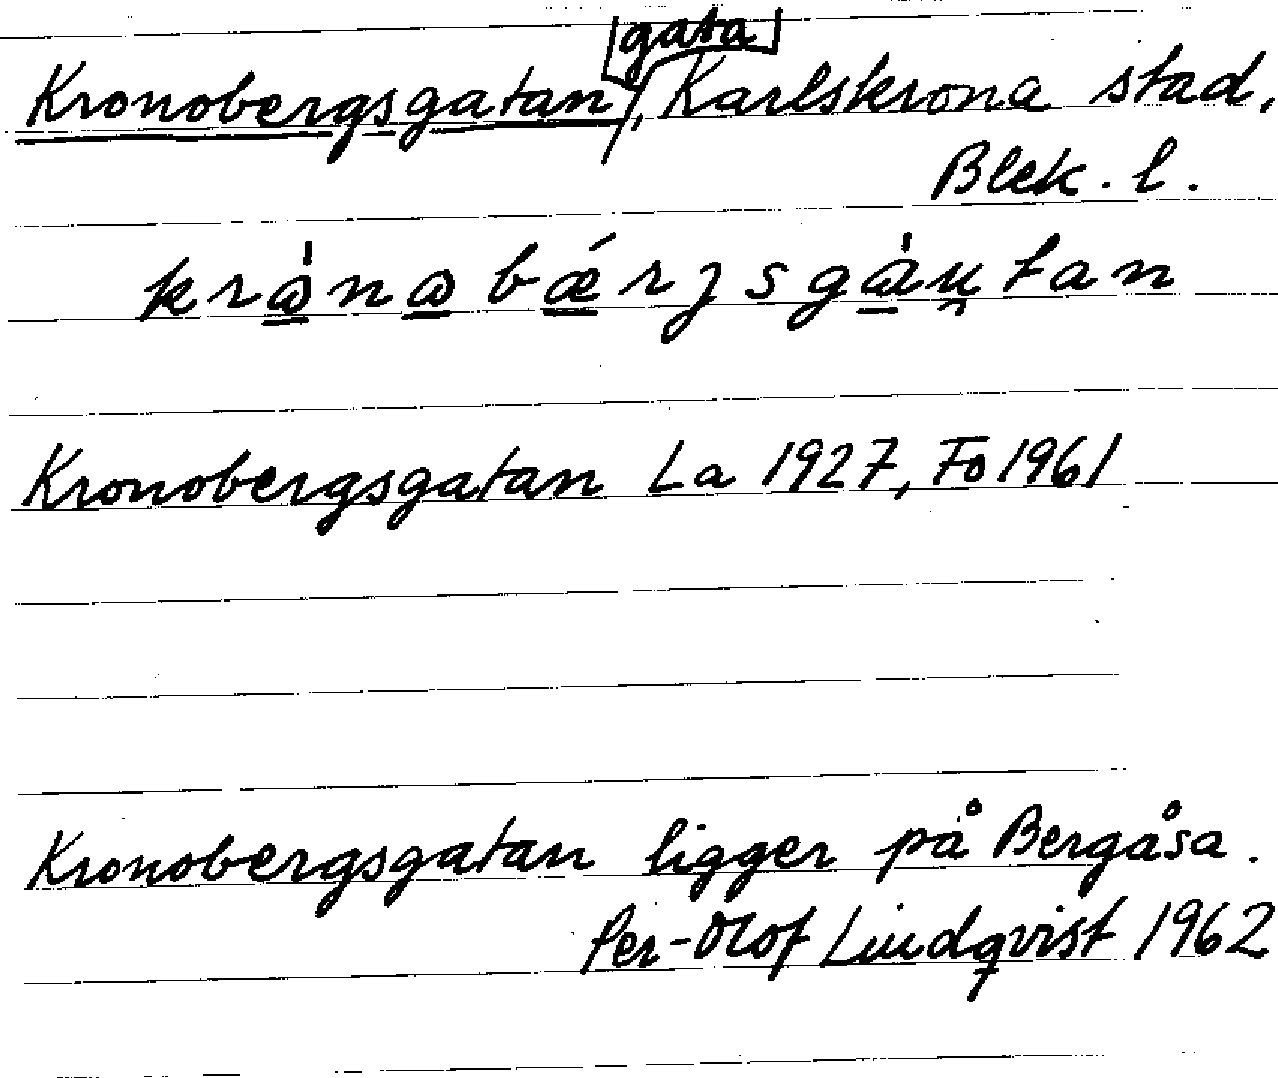 gata
Kronobergsgatan, Karlskrona stad,
Blek. l.
Kronobergsgatan La 1927, Fo 1961
Kronobergsgatan ligger på Bergåsa.
Per-Olof Lindqvist 1962